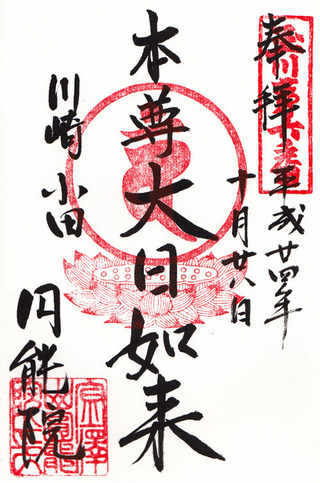 奉拝
平成廿四年
十月廿八日
本尊大日如来
川崎 小田
円能院